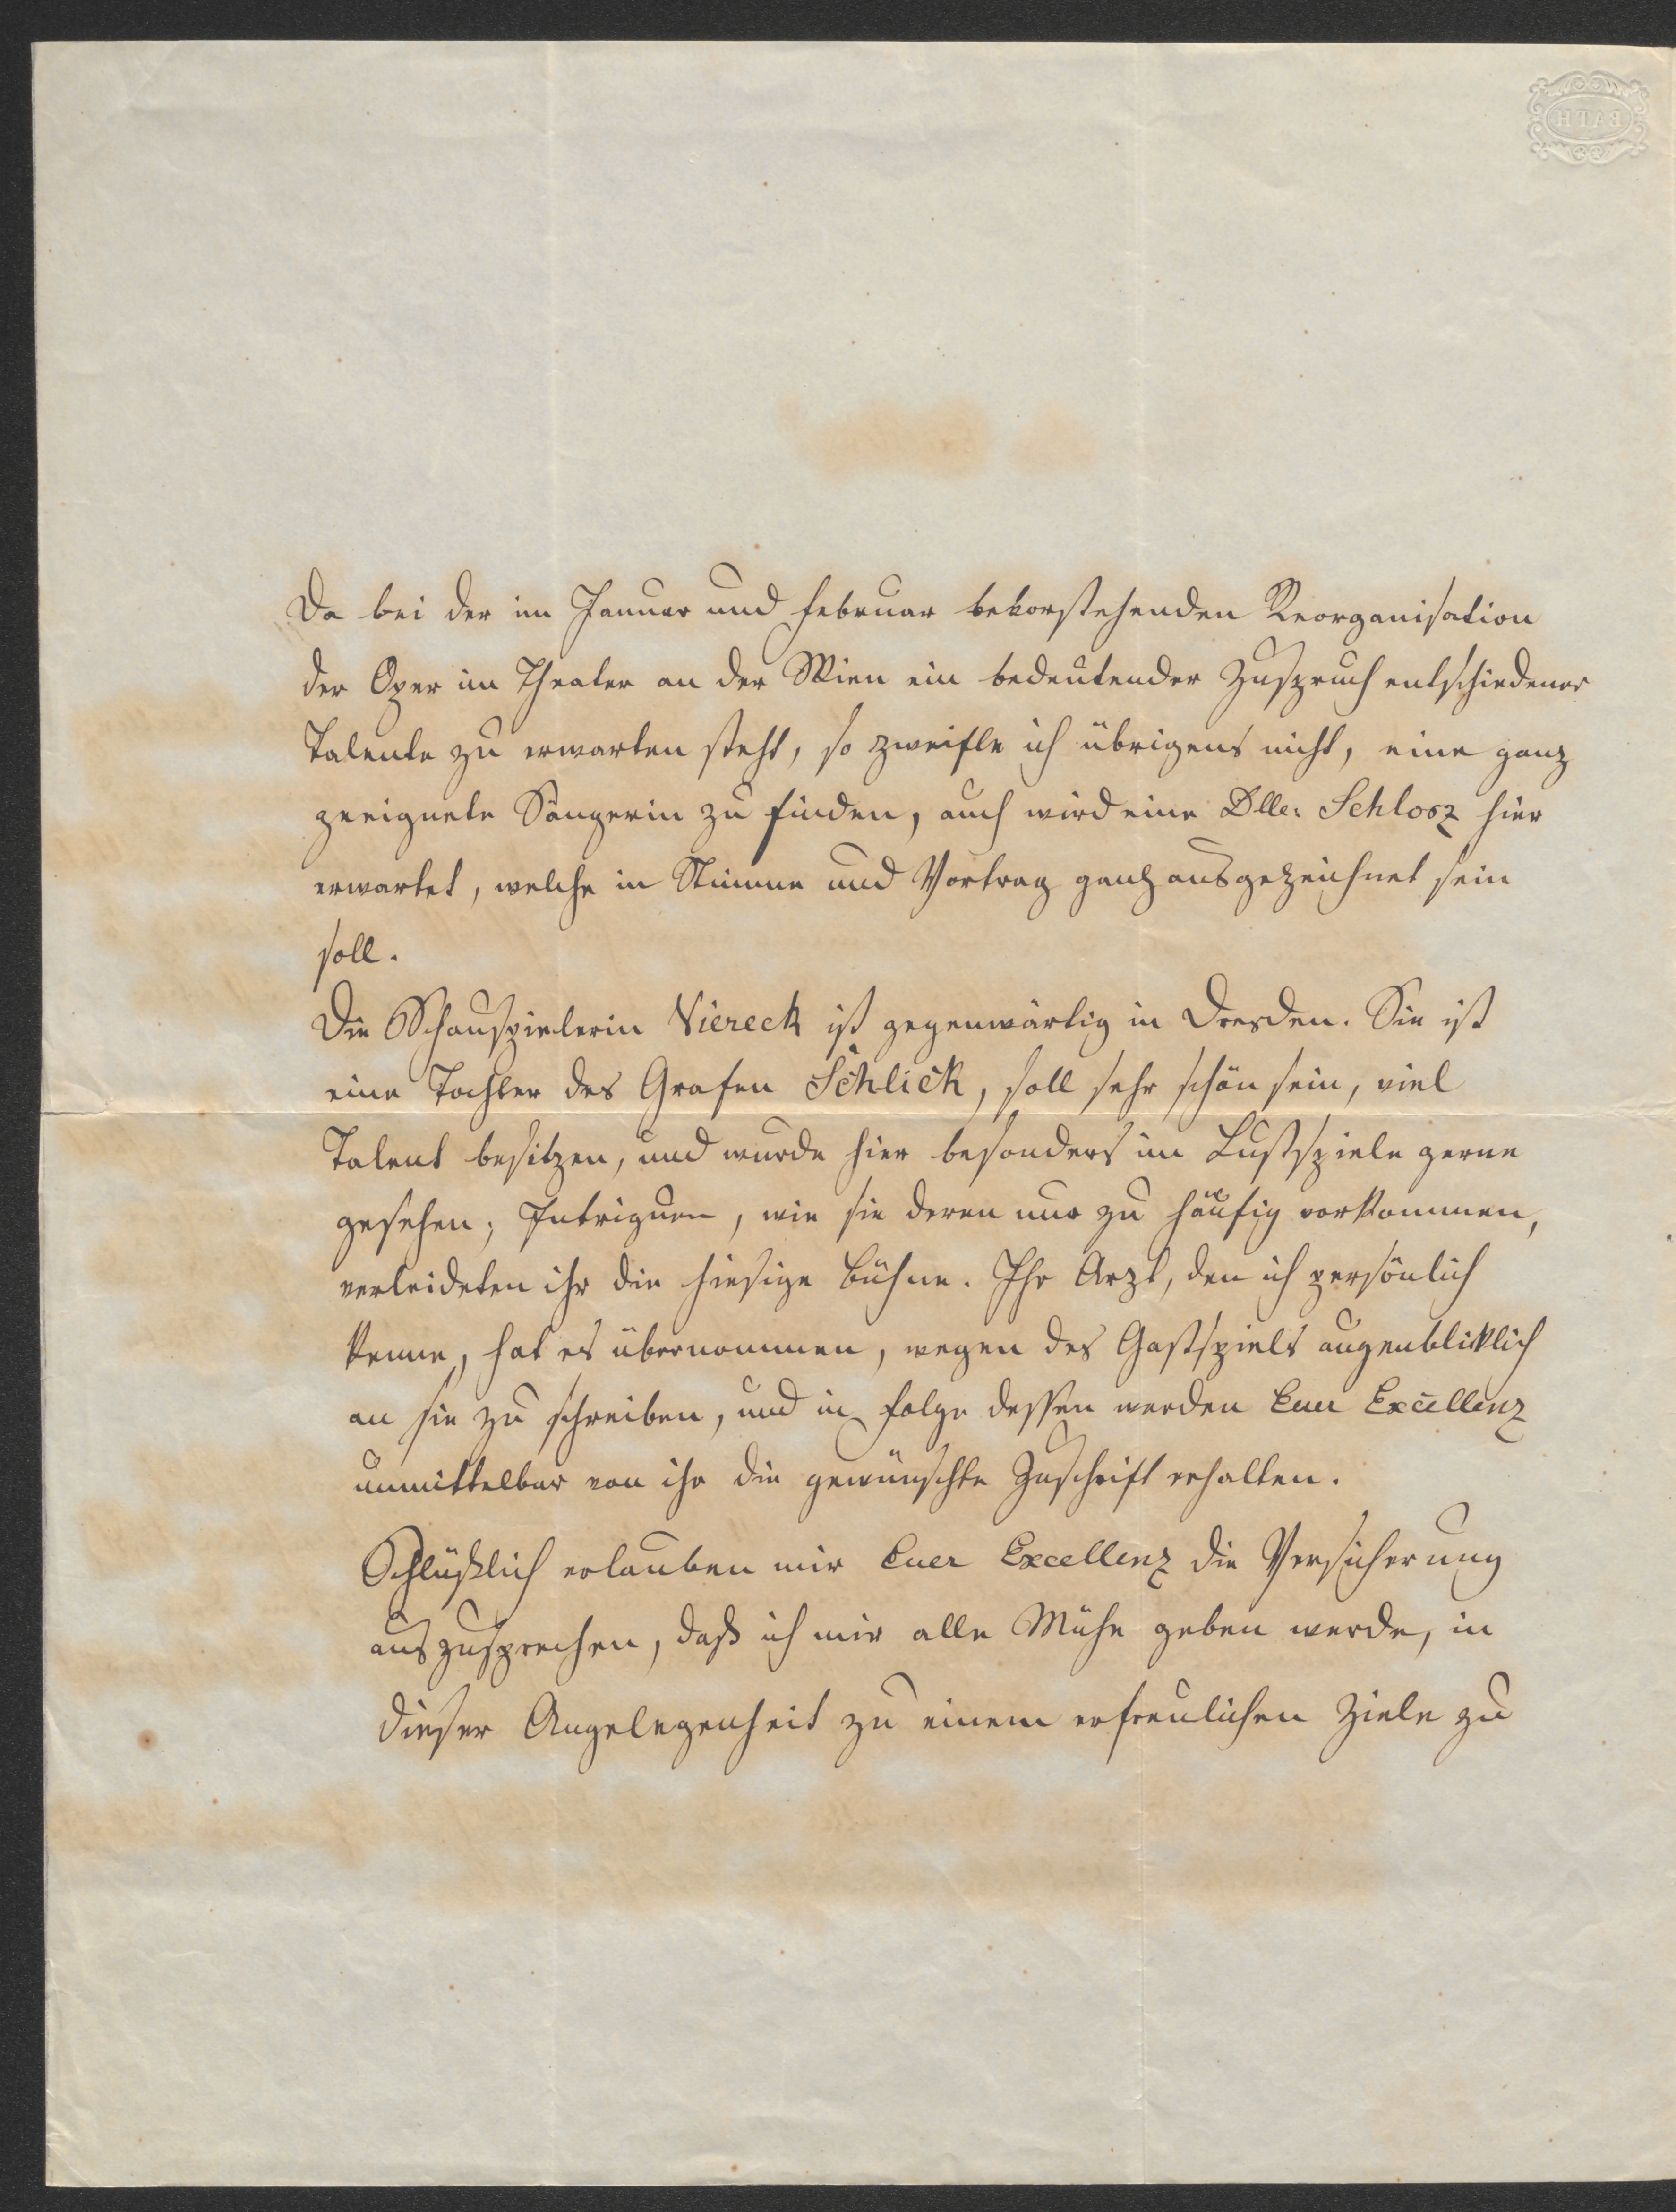 BATH
Da bei der im Januar und Februar bevorstehenden Reorganisation
der Oper im Theater an der Wien ein bedeutender Zuspruch entschiedener
Talente zu erwarten steht, so zweifle ich übrigens nicht, eine ganz
geeignete Sängerin zu finden, auch wird eine Dlle: Schlosz hier
erwartet, welche in Stimme und Vortrag ganz ausgezeichnet sein
soll.
Die Schauspielerin Viereck ist gegenwärtig in Dresden. Sie ist
eine Tochter des Grafen Schlick, soll sehr schön sein, viel
Talent besitzen, und wurde hier besonders im Lustspiele gerne
gesehen; Intriguen, wie sie deren nur zu häufig vorkommen,
verleideten ihr die hiesige Bühne. Ihr Arzt, den ich persönlich
kenne, hat es übernommen, wegen des Gastspiels augenbliklich
an sie zu schreiben, und in Folge dessen werden Euer Excellenz
unmittelbar von ihr die gewünschte Zuschrift erhalten.
Schlüßlich erlauben mir Euer Excellenz die Versicherung
auszusprechen, daß ich mir alle Mühe geben werde, in
dieser Angelegenheit zu einem erfreulichen Ziele zu